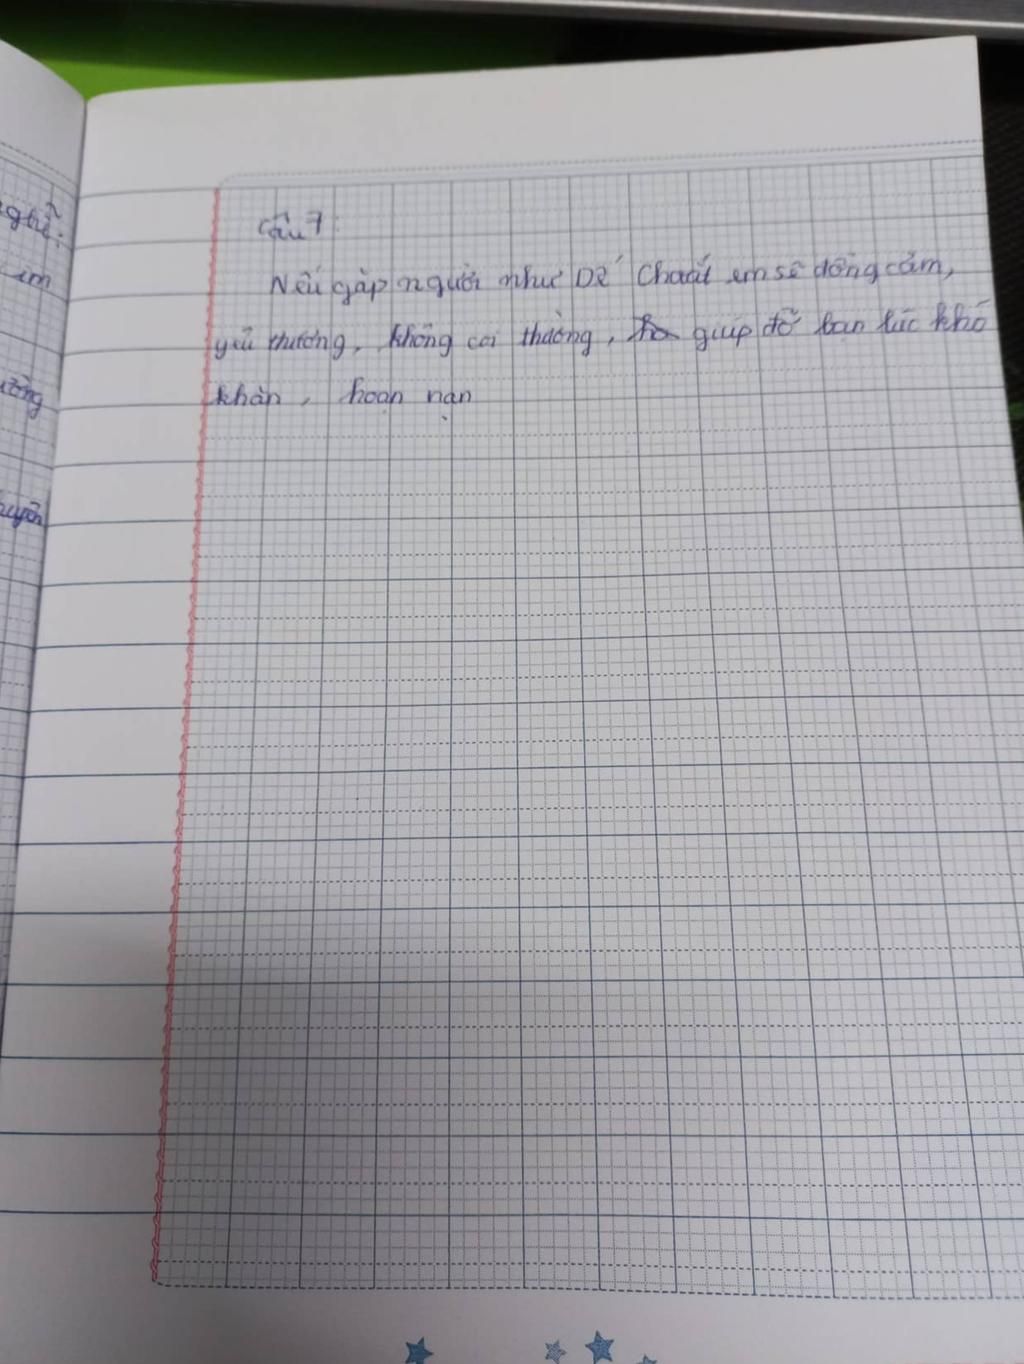 nghề.
em
Câu 7:
Nếu gặp người như Dế Choắt em sẽ đồng cảm,
yêu thương, không coi thường, giúp đỡ bạn lúc khó
khăn, hoạn nạn